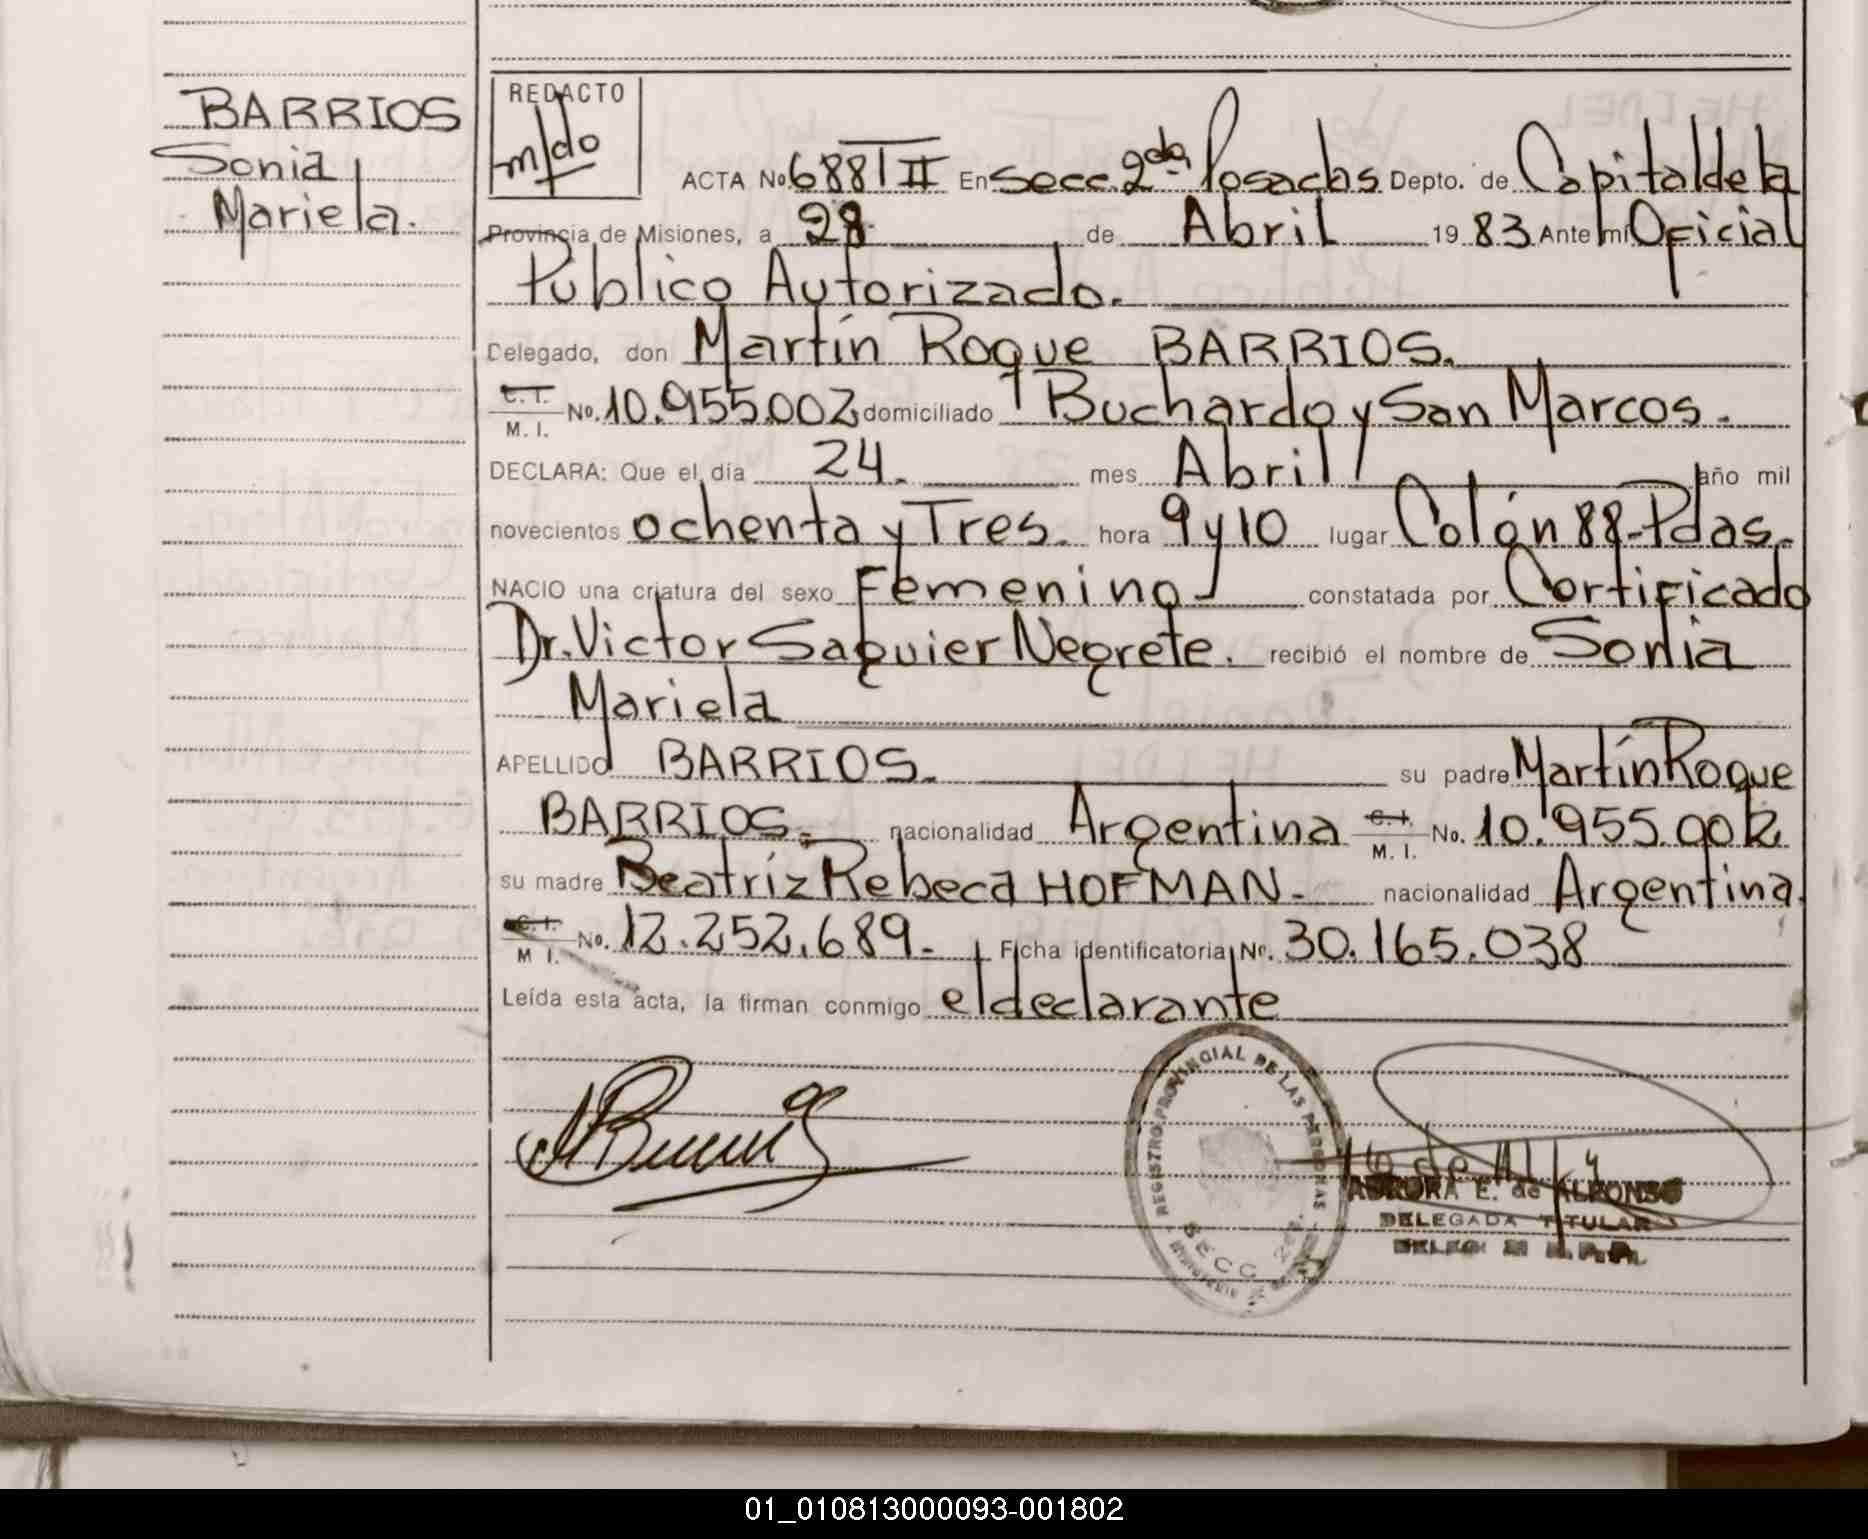 BARRIOS
Sonia
Mariela.
REDACTO
m/do
ACTA No 688 T II En Secc. 2da. Posadas Depto. de Capital de la
Provincia de Misiones, a 28 de Abril 19 83 Ante mí Oficial
Público Autorizado.
Delegado, don Martín Roque BARRIOS.
C. I. No. 10.955.002 domiciliado Buchardo y San Marcos.
M. I.
DECLARA: Que el día 24. mes Abril año mil
novecientos ochenta y Tres. hora 9 y 10 lugar Colón 88-Pdas.
NACIO una criatura del sexo Femenino constatada por Certificado
Dr. Victor Saguier Negrete. recibió el nombre de Sonia
Mariela
APELLIDO BARRIOS. su padre Martín Roque
BARRIOS. nacionalidad Argentina C. I. No. 10.955.002
M. I.
su madre Beatríz Rebeca HOFMAN. nacionalidad Argentina.
C. I. No. 12.252.689. Ficha identificatoria No. 30.165.038
M I.
Leída esta acta, la firman conmigo el declarante
REGISTRO PROVINCIAL DE LAS PERSONAS
SECC. 2da.
AURORA E. de ALFONSO
DELEGADA TITULAR
01_010813000093-001802